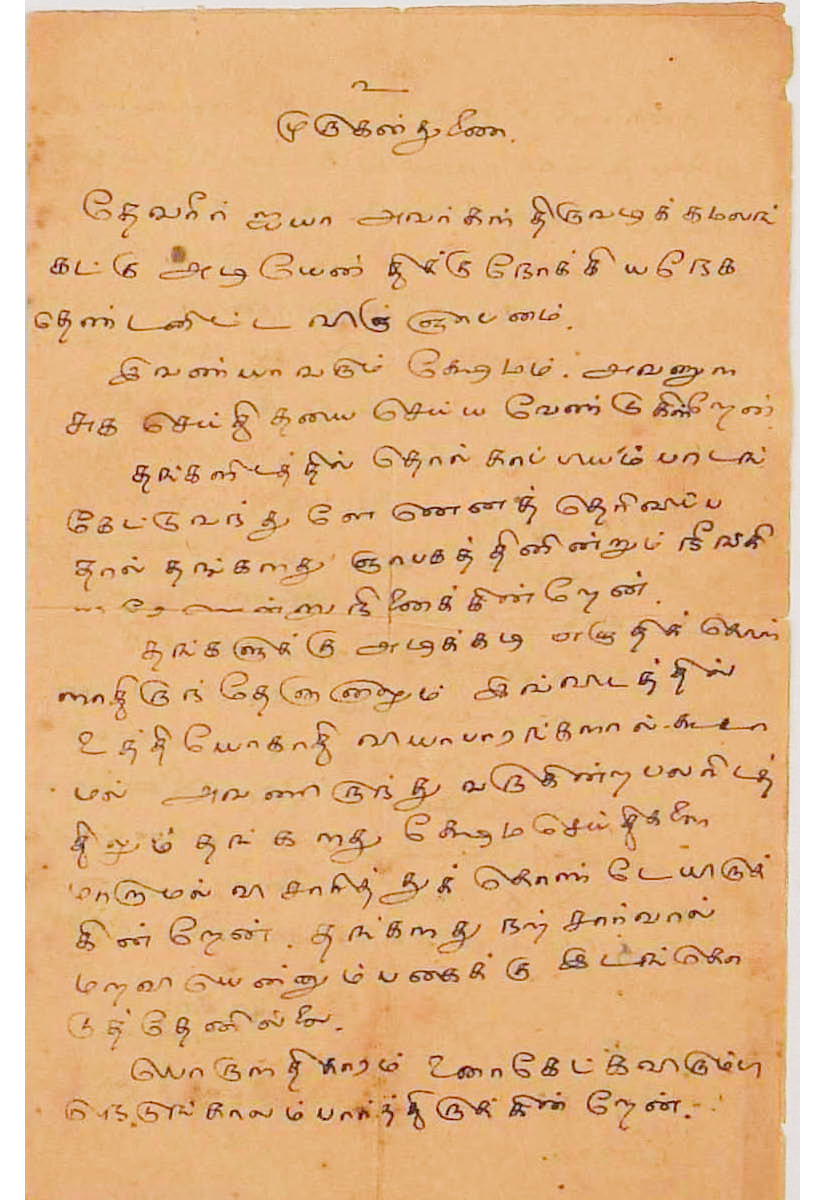 உ
முருகன் துணை.
தேவரீர் ஐயா அவர்கள் திருவடிக்கமலங்
கட்கு அடியேன் திக்கு நோக்கியநேக
தெண்டனிட்ட விஞ்ஞாபனம்.
இவண்யாவரும் க்ஷேமம். அவணுள
சுக செய்தி தயை செய்ய வேண்டுகின்றேன்.
தங்களிடத்தில் தொல்காப்பியம் பாடங்
கேட்டுவந்துளேனெனத் தெரிவிப்ப
தால் தங்களது ஞாபகத்தினின்றும் நீங்கி
யிரேனென்று நினைக்கின்றேன்.
தங்களுக்கு அடிக்கடி எழுதிக் கொள்
ளாதிருந்தேனாயினும் இவ்விடத்தில்
உத்தியோகாதி வியாபாரங்களால் கூடா
மல் அவணிருந்து வருகின்ற பலரிடத்
திலும் தங்களது க்ஷேமசெய்திகளை
மாறாமல் விசாரித்துக் கொண்டேயிருக்
கின்றேன். தங்களது நற் சார்வால்
மறவியென்னும்பகைக்கு இடங்கொ
டுத்தேனில்லை.
பொருளதிகாரம் உரைகேட்கவிரும்பி
நெடுங்காலம்பார்த்திருக்கின்றேன்.